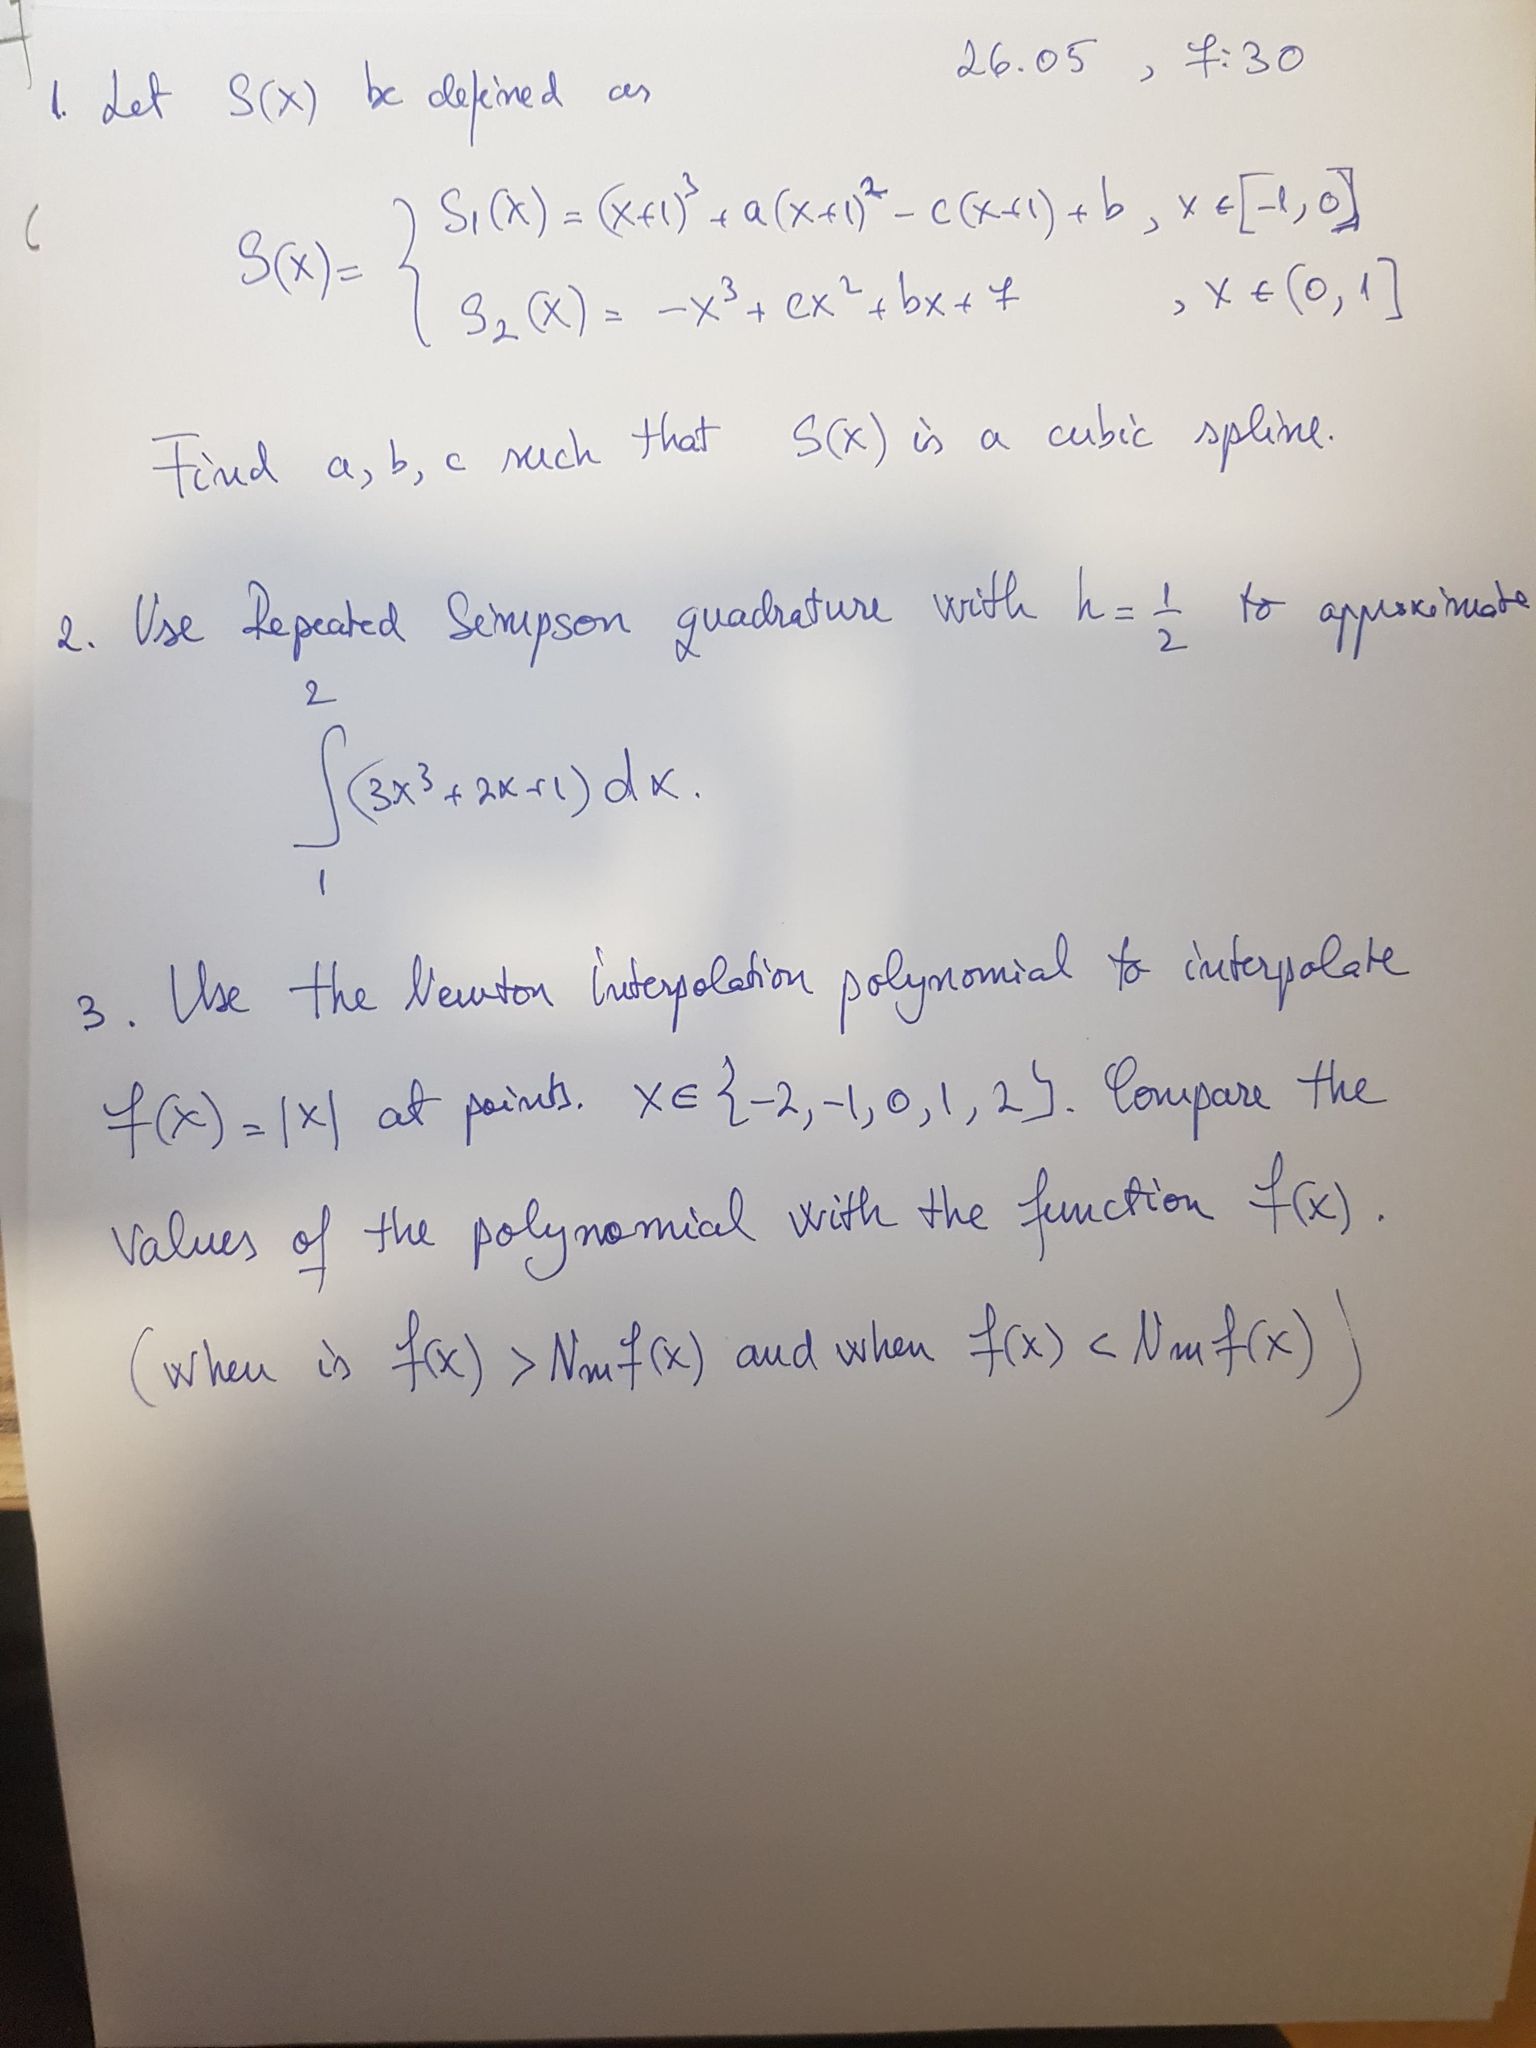 26.05 , 7:30
1. Let S(x) be defined as
S(x) = { S₁(x) = (x+1)³ + a(x+1)² - c(x+1) + b , x ∈ [-1, 0]
S₂(x) = -x³ + cx² + bx + 7 , x ∈ (0, 1]
Find a, b, c such that S(x) is a cubic spline.
2. Use Repeated Simpson quadrature with h = 1/2 to approximate
∫₁² (3x³ + 2x + 1) dx.
3. Use the Newton interpolation polynomial to interpolate
f(x) = |x| at points. x ∈ {-2, -1, 0, 1, 2}. Compare the
values of the polynomial with the function f(x).
(when is f(x) > Nm f(x) and when f(x) < Nm f(x))